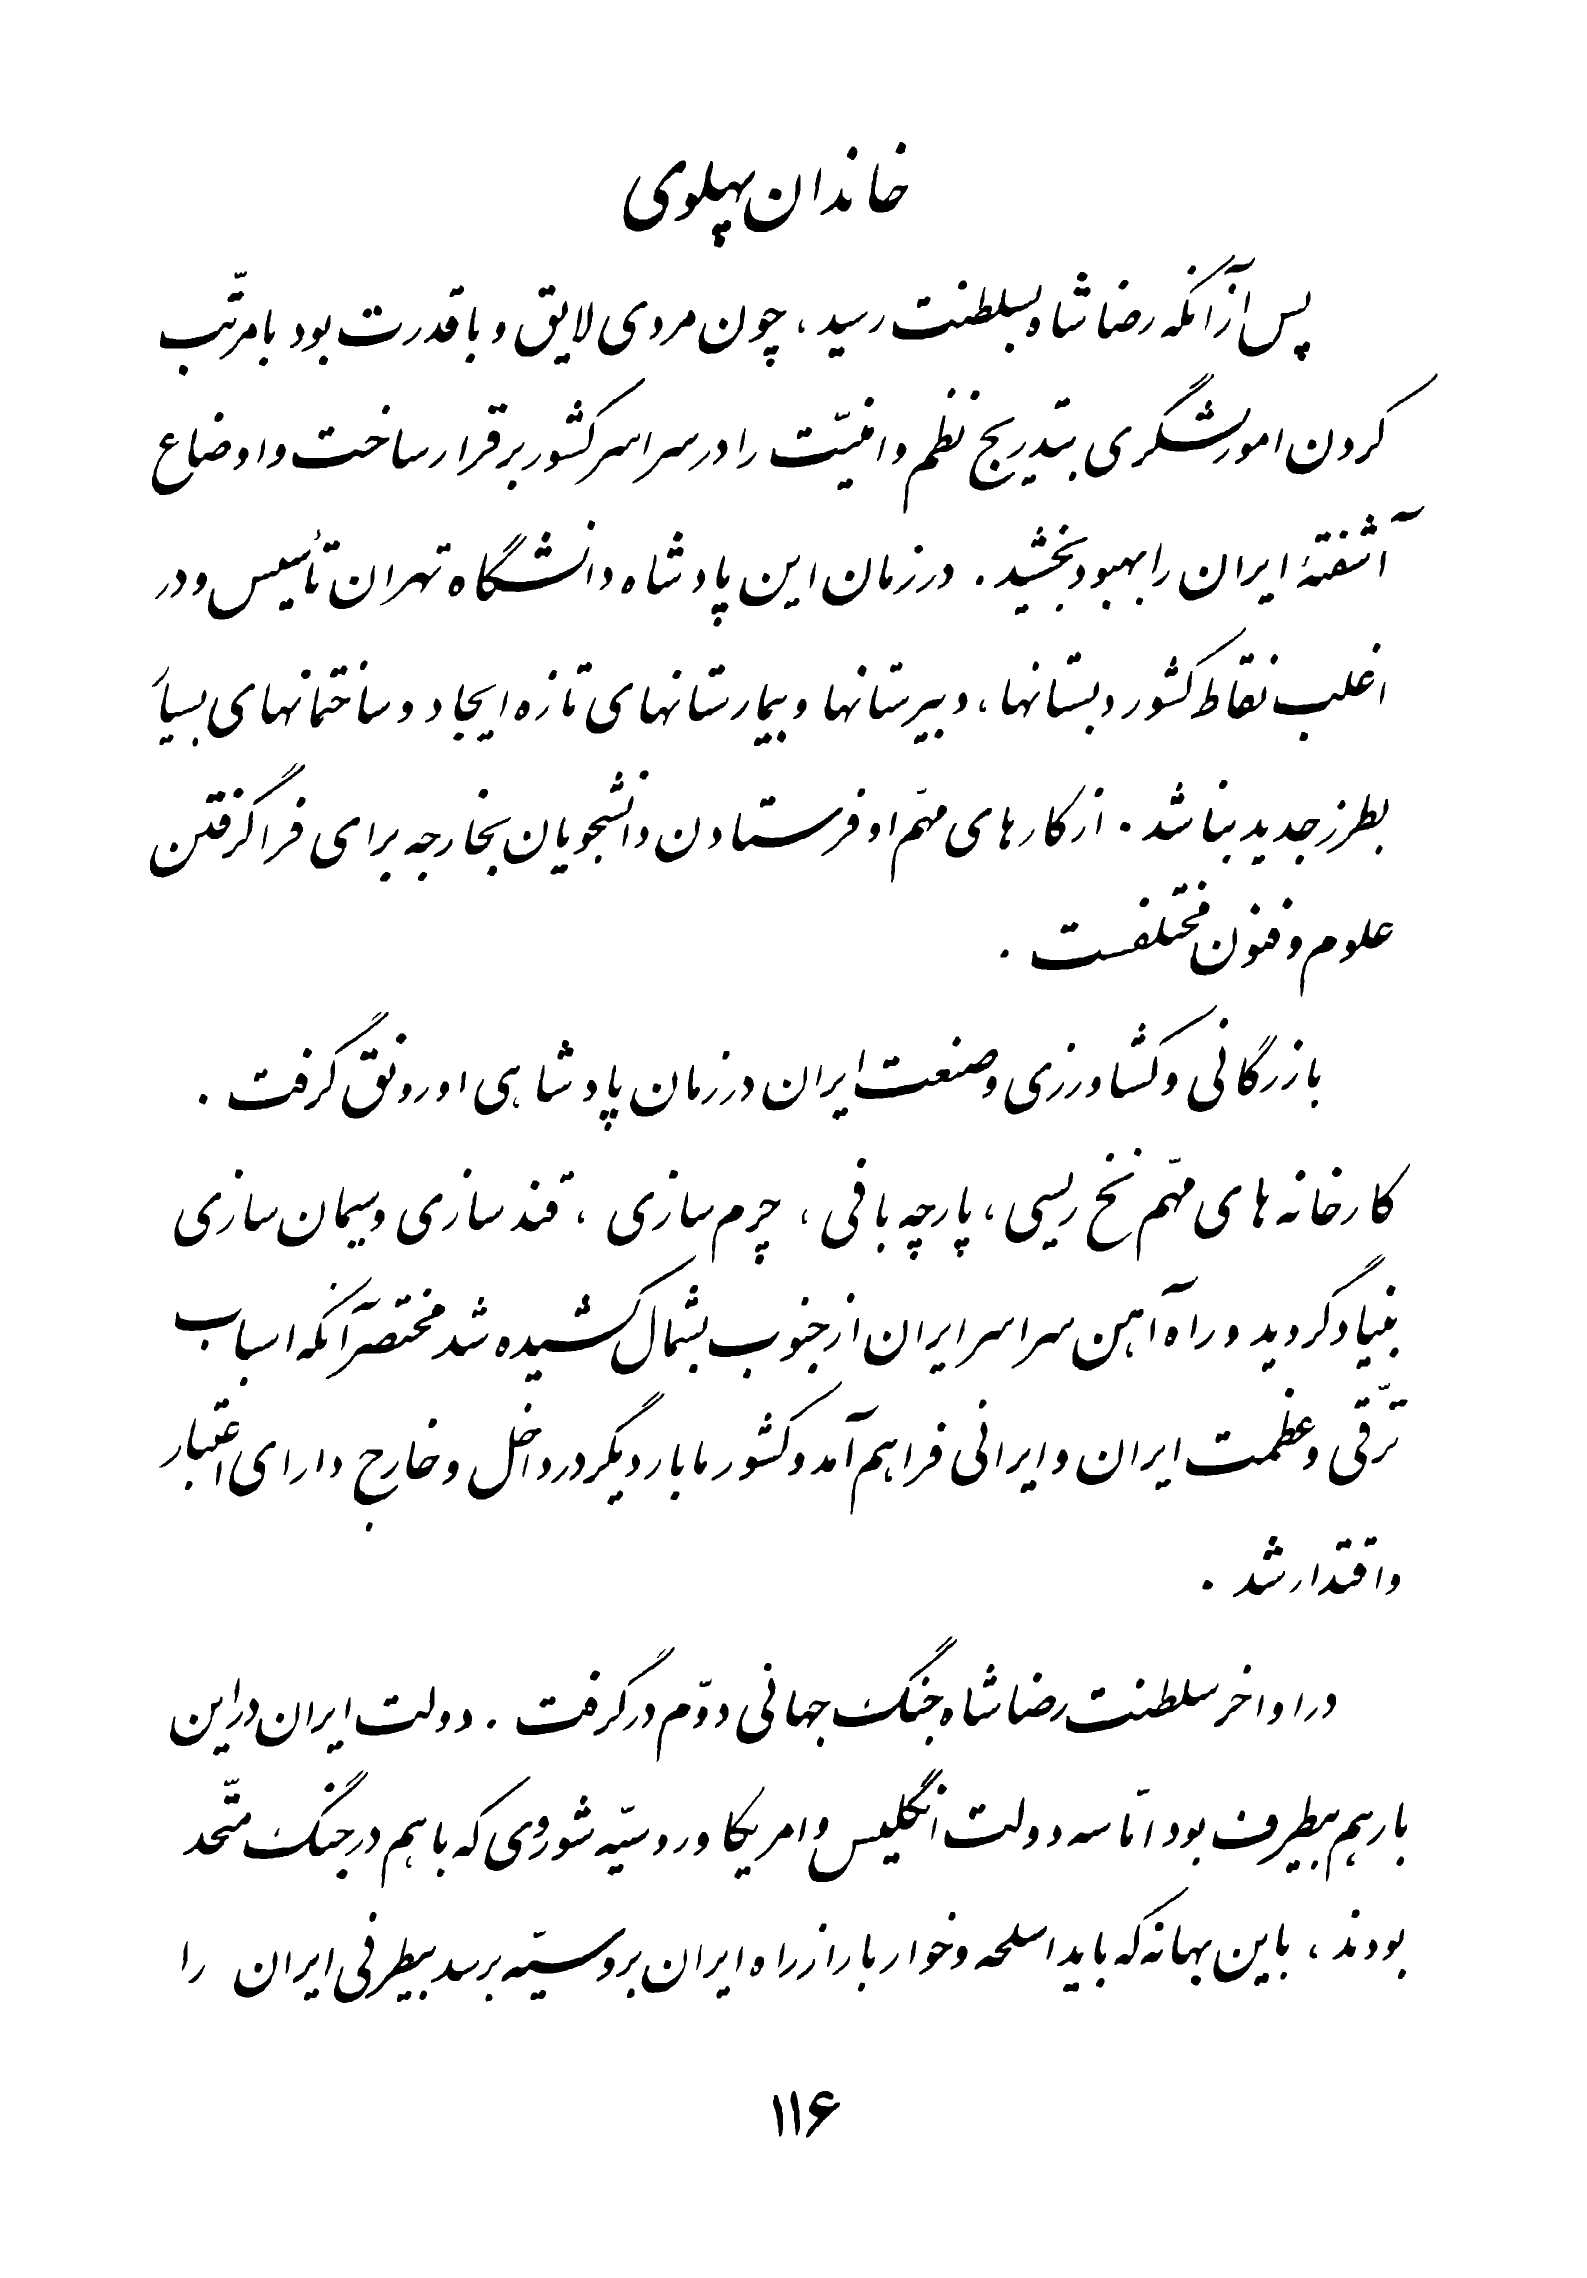 خاندان پهلوی
پس از آنکه رضا شاه بسلطنت رسید، چون مردی لایق و با قدرت بود با مرتّب
کردن امور لشگری بتدریج نظم و امنیّت را در سراسر کشور برقرار ساخت و اوضاع
آشفتهٔ ایران را بهبود بخشید. در زمان این پادشاه دانشگاه تهران تأسیس و در
اغلب نقاط کشور دبستانها، دبیرستانها و بیمارستانهای تازه ایجاد و ساختمانهای بسیار
بطرز جدید بنا شد. از کارهای مهّم او فرستادن دانشجویان بخارجه برای فرا گرفتن
علوم و فنون مختلفست.
بازرگانی و کشاورزی و صنعت ایران در زمان پادشاهی او رونق گرفت.
کارخانه های مهّم نخ ریسی، پارچه بافی، چرم سازی، قند سازی و سیمان سازی
بنیاد گردید و راه آهن سراسر ایران از جنوب بشمال کشیده شد مختصر آنکه اسباب
ترّقی و عظمت ایران و ایرانی فراهم آمد و کشور ما بار دیگر در داخل و خارج دارای اعتبار
و اقتدار شد.
در اواخر سلطنت رضا شاه جنگ جهانی دوّم در گرفت. دولت ایران در این
بار هم بیطرف بود امّا سه دولت انگلیس و امریکا و روسیّه شوروی که با هم در جنگ متّحد
بودند، باین بهانه که باید اسلحه و خوار بار از راه ایران بروسیّه برسد بیطرفی ایران را
۱۱۶